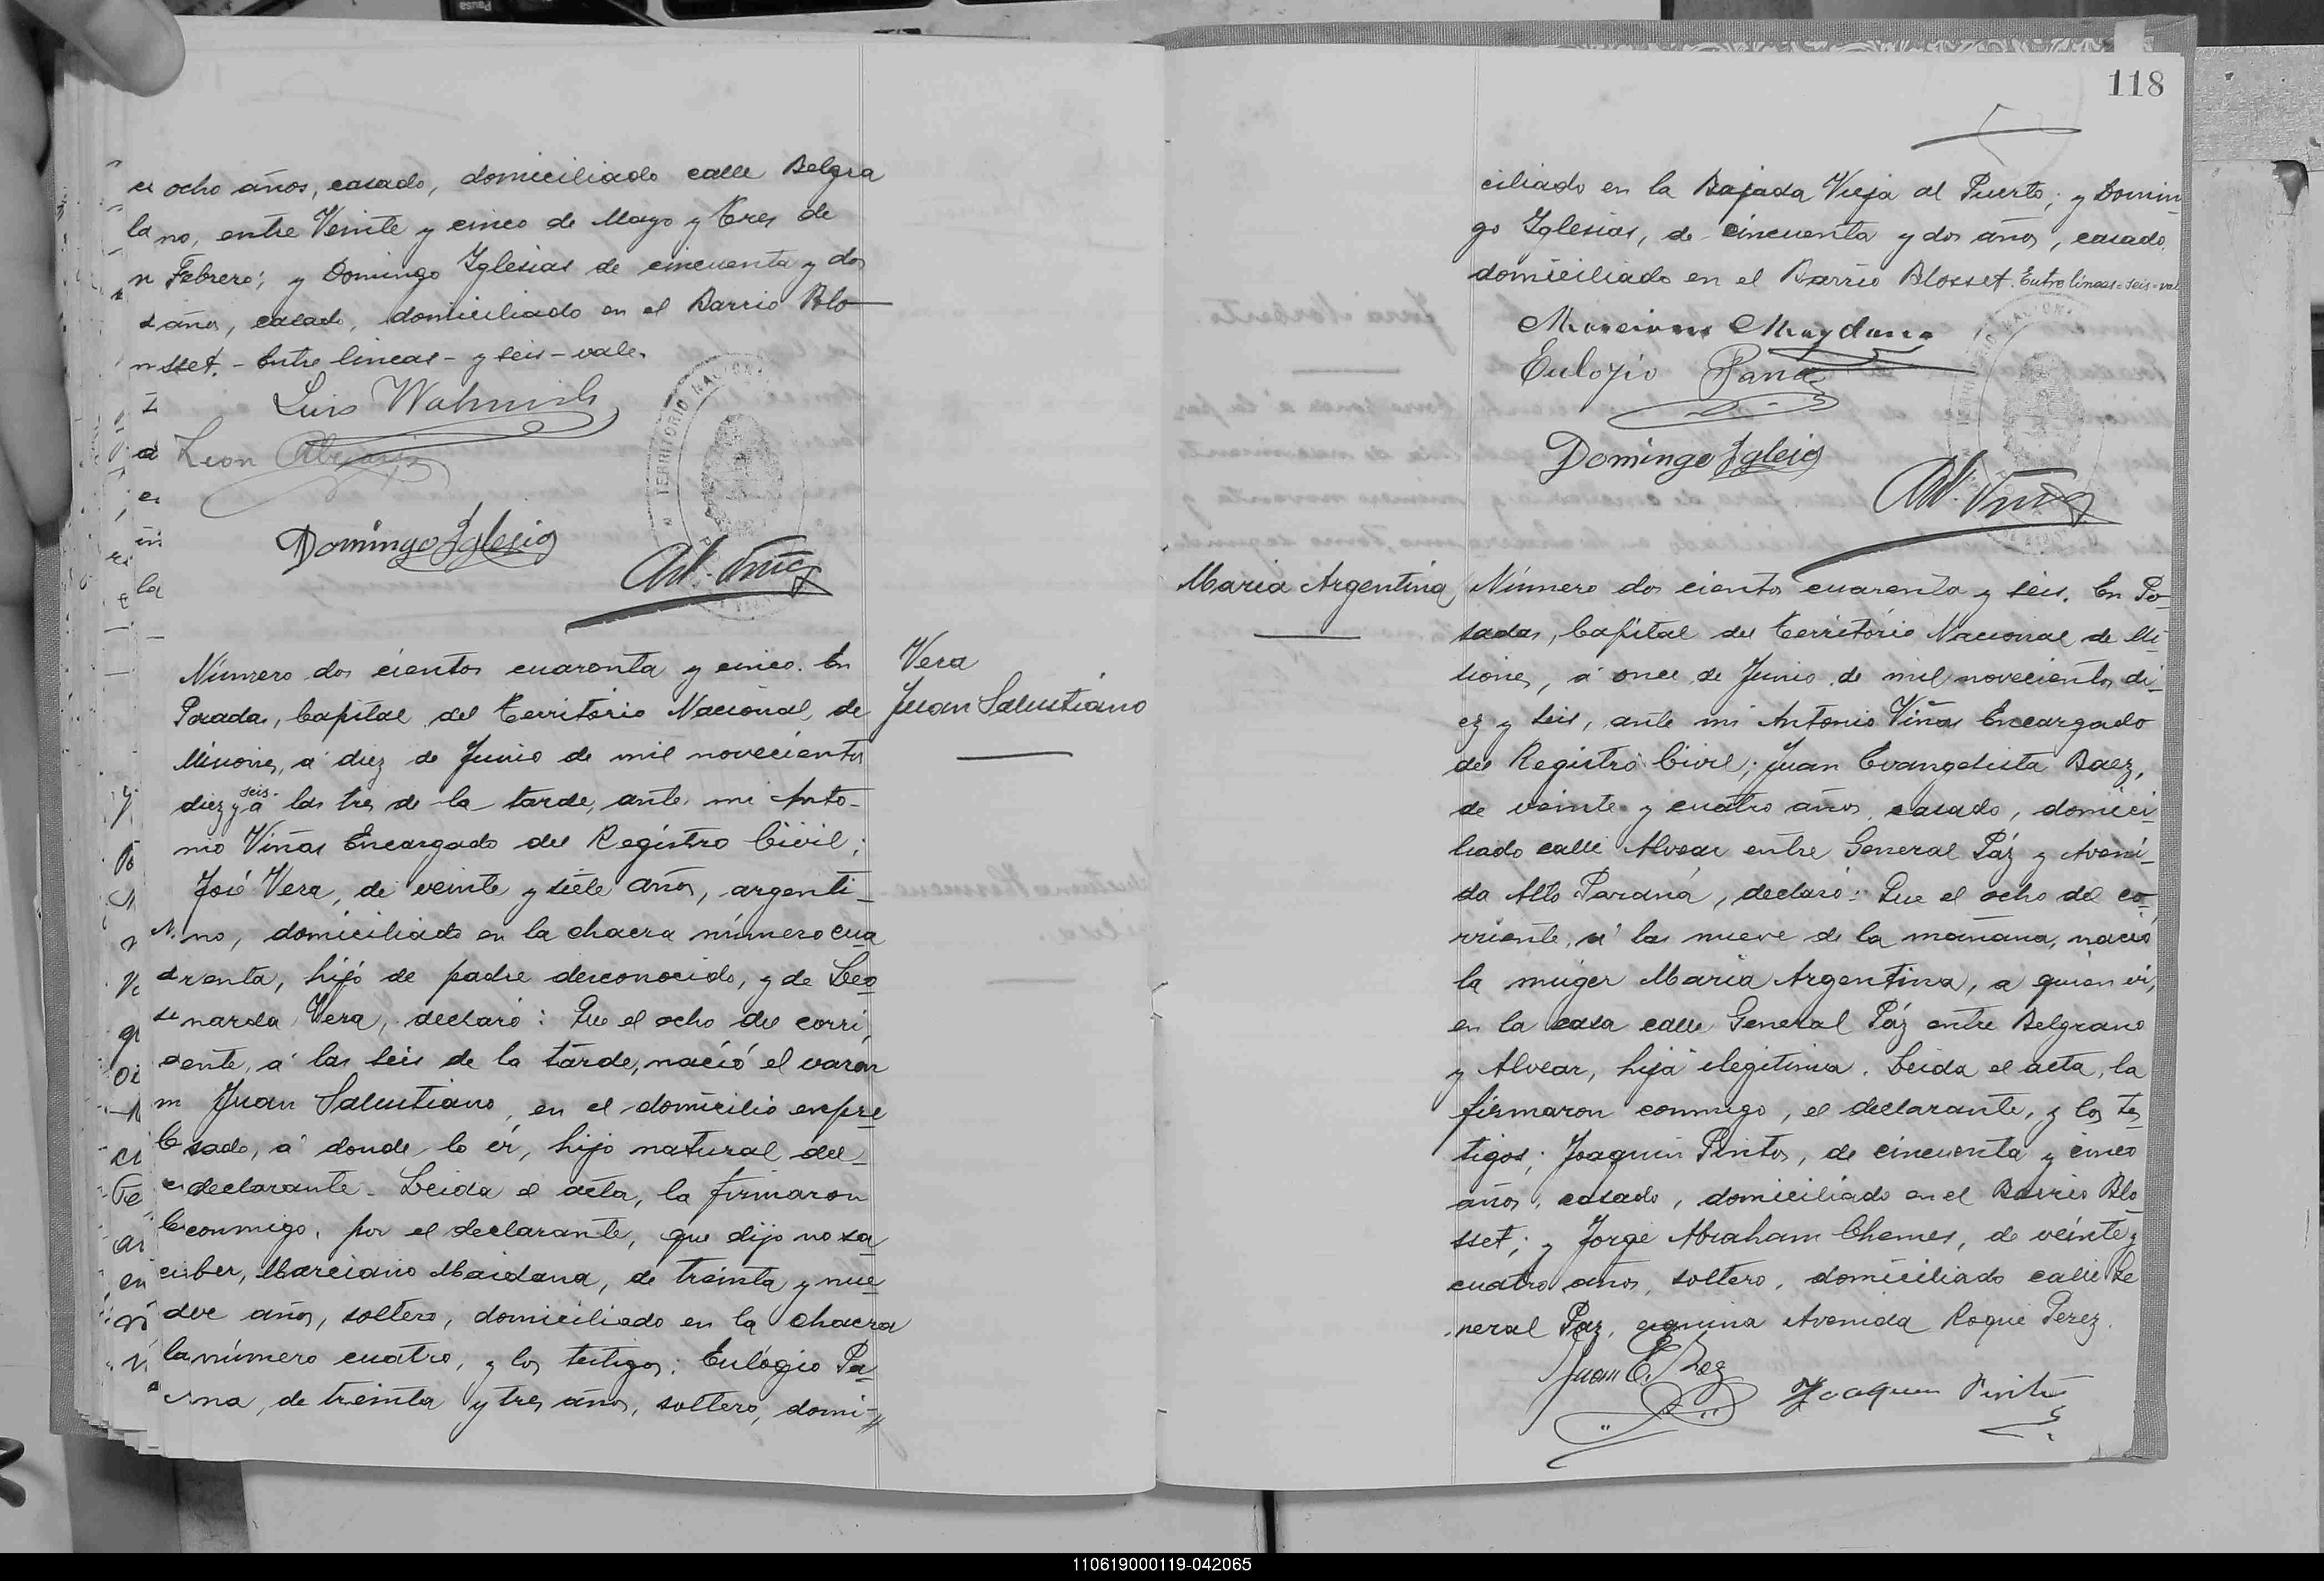 ocho años, casado, domiciliado calle Belgra
no, entre Veinte y cinco de Mayo y Tres de
Febrero; y Domingo Iglesias de cincuenta y dos
años, casado, domiciliado en el Barrio Blo
sset. - Entre lineas - y seis - vale.
Luis
Leon
Domingo Iglesias
Ant. Viñas
TERRITORIO NACIONAL
Número dos cientos cuarenta y cinco. En
Posadas, Capital del Territorio Nacional, de
Misiones, á diez de Junio de mil novecientos
seis.
diez y á las tres de la tarde, ante mi Anto-
nio Viñas Encargado del Registro Civil;
José Vera, de veinte y siete años, argenti-
no, domiciliado en la chacra número cua
renta, hijo de padre desconocido, y de Leo
narda Vera, declaró: Que el ocho del corri
ente, á las seis de la tarde, nació el varon
Juan Salustiano, en el domicilio expre
sado, á donde lo vi, hijo natural del
declarante. Leida el acta, la firmaron
conmigo, por el declarante, que dijo no sa
ber, Marciano Maidana, de treinta y nue
ve años, soltero, domiciliado en la chacra
número cuatro, y los testigos: Eulógio Pa-
na, de treinta y tres años, soltero, domi-//
Vera
Juan Salustiano
118
ciliado en la Bajada Vieja al Puerto; y Domin
go Iglesias, de cincuenta y dos años, casado,
domiciliado en el Barrio Blosset. Entre lineas = seis = vale
Marciano Maydana
Eulogio Pana
Domingo Iglesias
Ant. Viñas
Maria Argentina
Número dos cientos cuarenta y seis. En Po-
sadas, Capital del Territorio Nacional de Mi-
siones, á once de Junio de mil novecientos di-
ez y seis, ante mi Antonio Viñas Encargado
del Registro Civil; Juan Evangelista Baez,
de veinte y cuatro años, casado, domici
liado calle Alvear entre General Páz y Aveni-
da Alto Paraná, declaró: Que el ocho del co-
rriente, á las nueve de la mañana, nació
la muger Maria Argentina, a quien vi,
en la casa calle General Páz entre Belgrano
y Alvear, hija ilegitima. Leida el acta, la
firmaron conmigo, el declarante, y los tes
tigos; Joaquin Pintos, de cincuenta y cinco
años, casado, domiciliado en el Barrio Blo
sset; y Jorge Abraham Chemes, de veinte y
cuatro años, soltero, domiciliado calle Ge
neral Paz, esquina Avenida Roque Perez.
Juan E. Baez
Joaquin Pinto
110619000119-042065